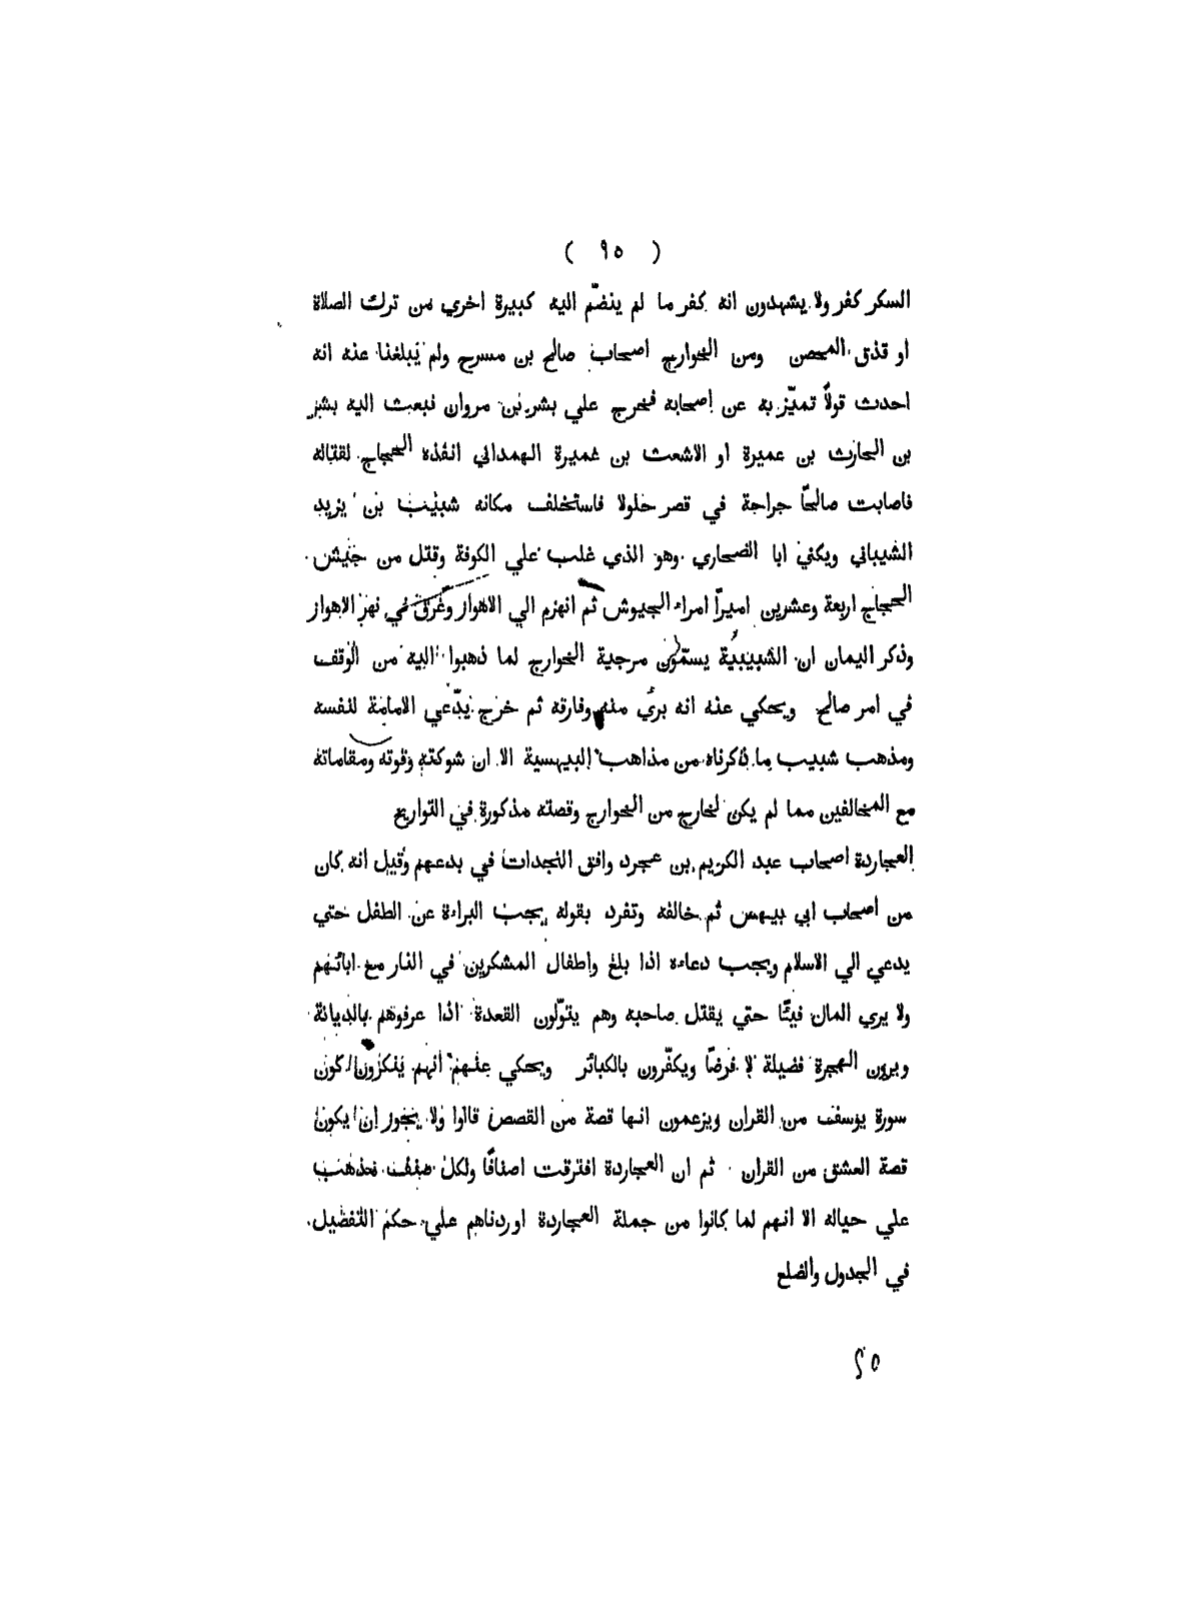 ( ٩٥ )
السكر كفر ولا يشهدون انه كفر ما لم ينضّم اليه كبيرة اخري من ترك الصلاة
او قذق المحصن ومن الخوارج اصحاب صالح بن مسرح ولم يبلغنا عنه انه
احدث قولًا تميّز به عن اصحابه فخرج علي بشر بن مروان فبعث اليه بشر
بن الحارث بن عميرة او الاشعث بن عميرة الهمداني انفذه الحجاج لقتاله
فاصابت صالحًا جراحة في قصر حلولا فاستخلف مكانه شبيب بن يزيد
الشيباني ويكني ابا الصحاري وهو الذي غلب علي الكوفة وقتل من جيش
الحجاج اربعة وعشرين اميرًا امراء الجيوش ثم انهزم الي الاهواز وغرق في نهر الاهواز
وذكر اليمان ان الشبيبية يسمّون مرجية الخوارج لما ذهبوا اليه من الوقف
في امر صالح ويحكي عنه انه بري منه وفارقه ثم خرج يدّعي الامامة لنفسه
ومذهب شبيب ما ذكرناه من مذاهب البيهسية الا ان شوكته وقوته ومقاماته
مع المخالفين مما لم يكن لخارج من الخوارج وقصته مذكورة في التواريخ
العجاردة اصحاب عبد الكريم بن عجرد وافق النجدات في بدعهم وقيل انه كان
من اصحاب ابي بيهس ثم خالفه وتفرد بقوله يجب البراءة عن الطفل حتي
يدعي الي الاسلام ويجب دعاءه اذا بلغ واطفال المشكرين في النار مع ابائهم
ولا يري المال فيئًا حتي يقتل صاحبه وهم يتولّون القعدة اذا عرفوهم بالديانة
ويرون الهجرة فضيلة لا فرضًا ويكفّرون بالكبائر ويحكي عنهم انهم ينكرون كون
سورة يوسف من القران ويزعمون انها قصة من القصص قالوا ولا يجوز ان يكون
قصة العشق من القران ثم ان العجاردة افترقت اصنافًا ولكل صنف مذهب
علي حياله الا انهم لما كانوا من جملة العجاردة اوردناهم علي حكم التفصيل
في الجدول والضلع
٢٥